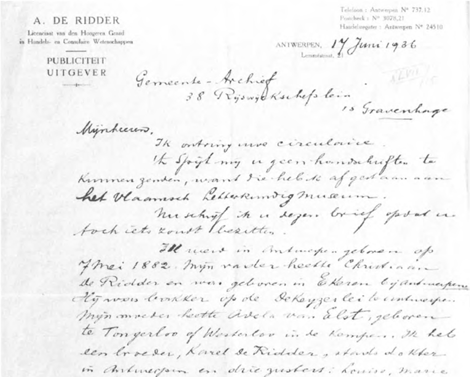 A. DE RIDDER
Licenciaat van den Hoogeren Graad
in Handels- en Consulaire Wetenschappen
PUBLICITEIT
UITGEVER
Telefoon: Antwerpen Nº 732.12
Postcheck: Nº
Handelsregister: Antwerpen Nº 24510
ANTWERPEN, 17 Juni 1936
Gemeente-Archief
38 Rijswijkscheplein
's Gravenhage
Mijnheeren,
Ik ontving uwe circulaire.
't Spijt mij u geen handschriften te
kunnen zenden, want die heb ik afgestaan aan
het Vlaamsch Letterkundig Museum.
Nu schrijf ik u dezen brief opdat u
toch iets zoudt bezitten.
Ik werd in Antwerpen geboren op
7 Mei 1882. Mijn vader heette Christiaan
de Ridder en was geboren in Ekeren bij Antwerpen
Hij was op de De Keyzerlei te Antwerpen.
Mijn moeder heette Adela van Elst, geboren
te Tongerloo of Westerloo in de Kempen. Ik heb
een broeder, Karel de Ridder, stadsdokter
in Antwerpen en drie zusters: Louise, Marie